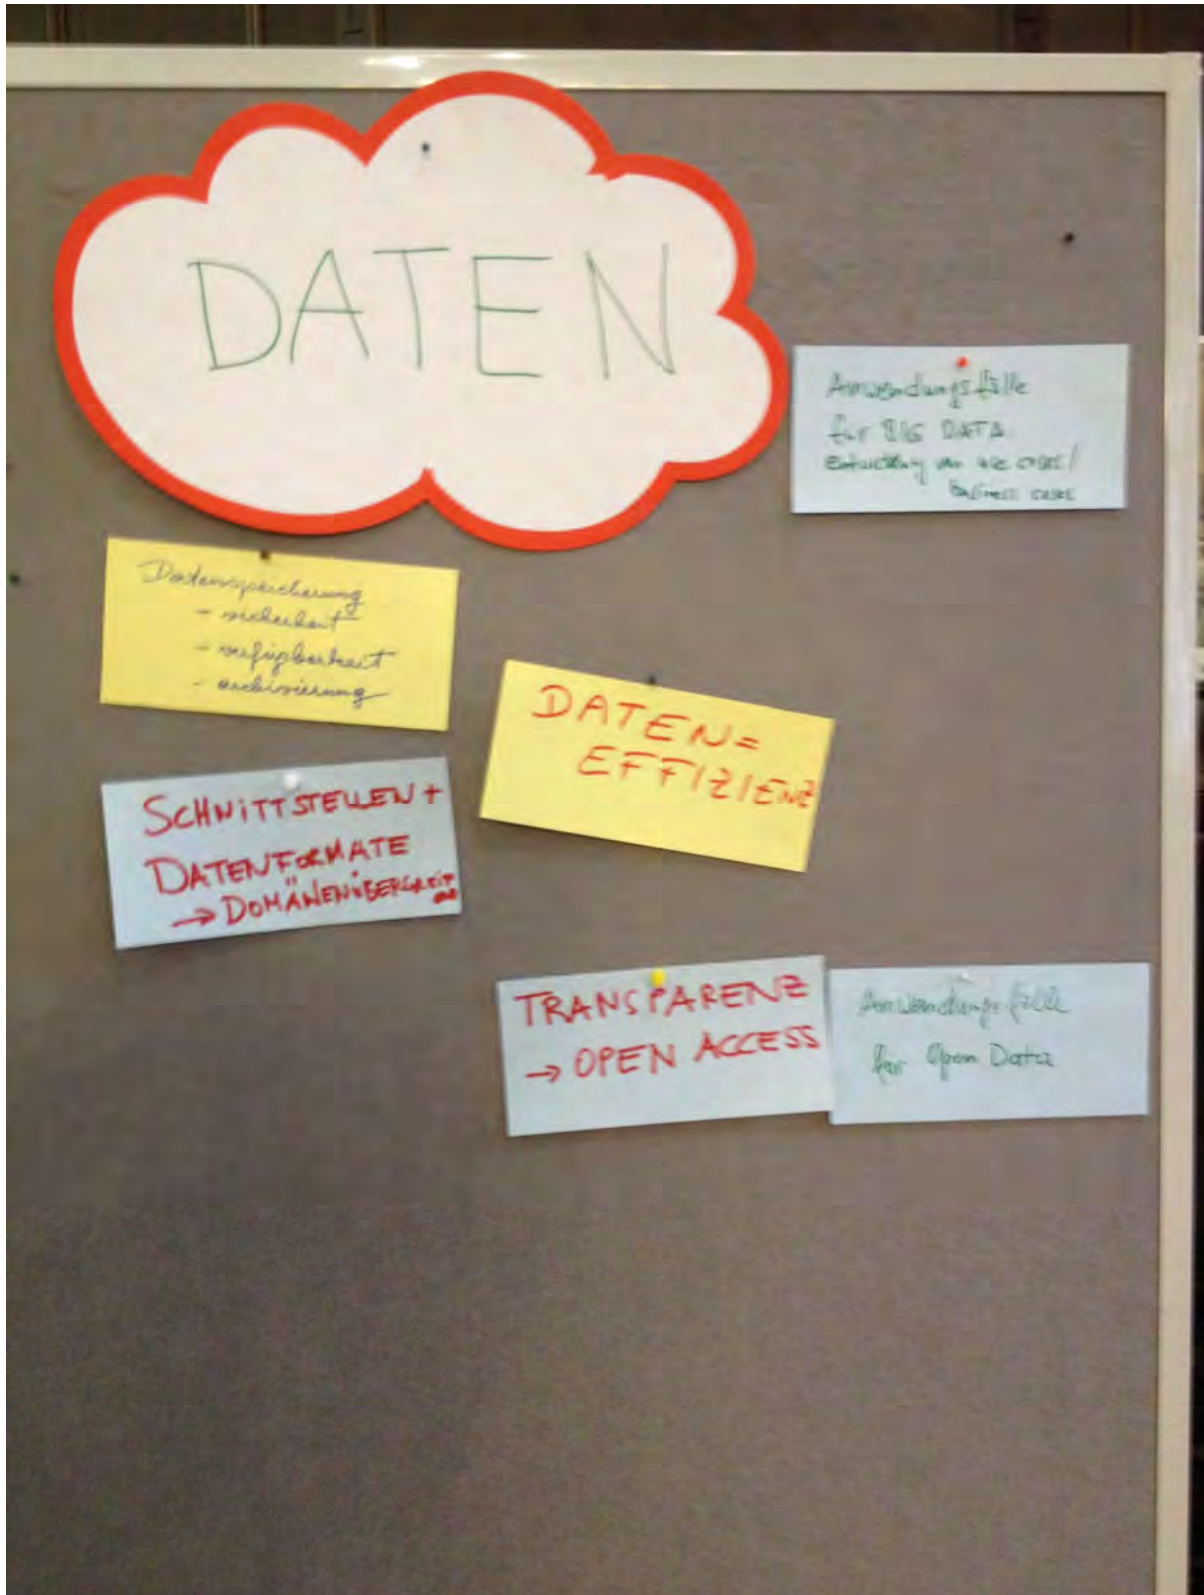 DATEN
Anwendungsfälle
für BIG DATA
Entwicklung von use cases/
Business cases
Datenspeicherung
- sicherheit
- verfügbarkeit
- archivierung
DATEN=
EFFIZIENZ
SCHNITTSTELLEN +
DATENFORMATE
→ DOMÄNENÜBERGREIF
END
TRANSPARENZ
→ OPEN ACCESS
Anwendungsfälle
für Open Data